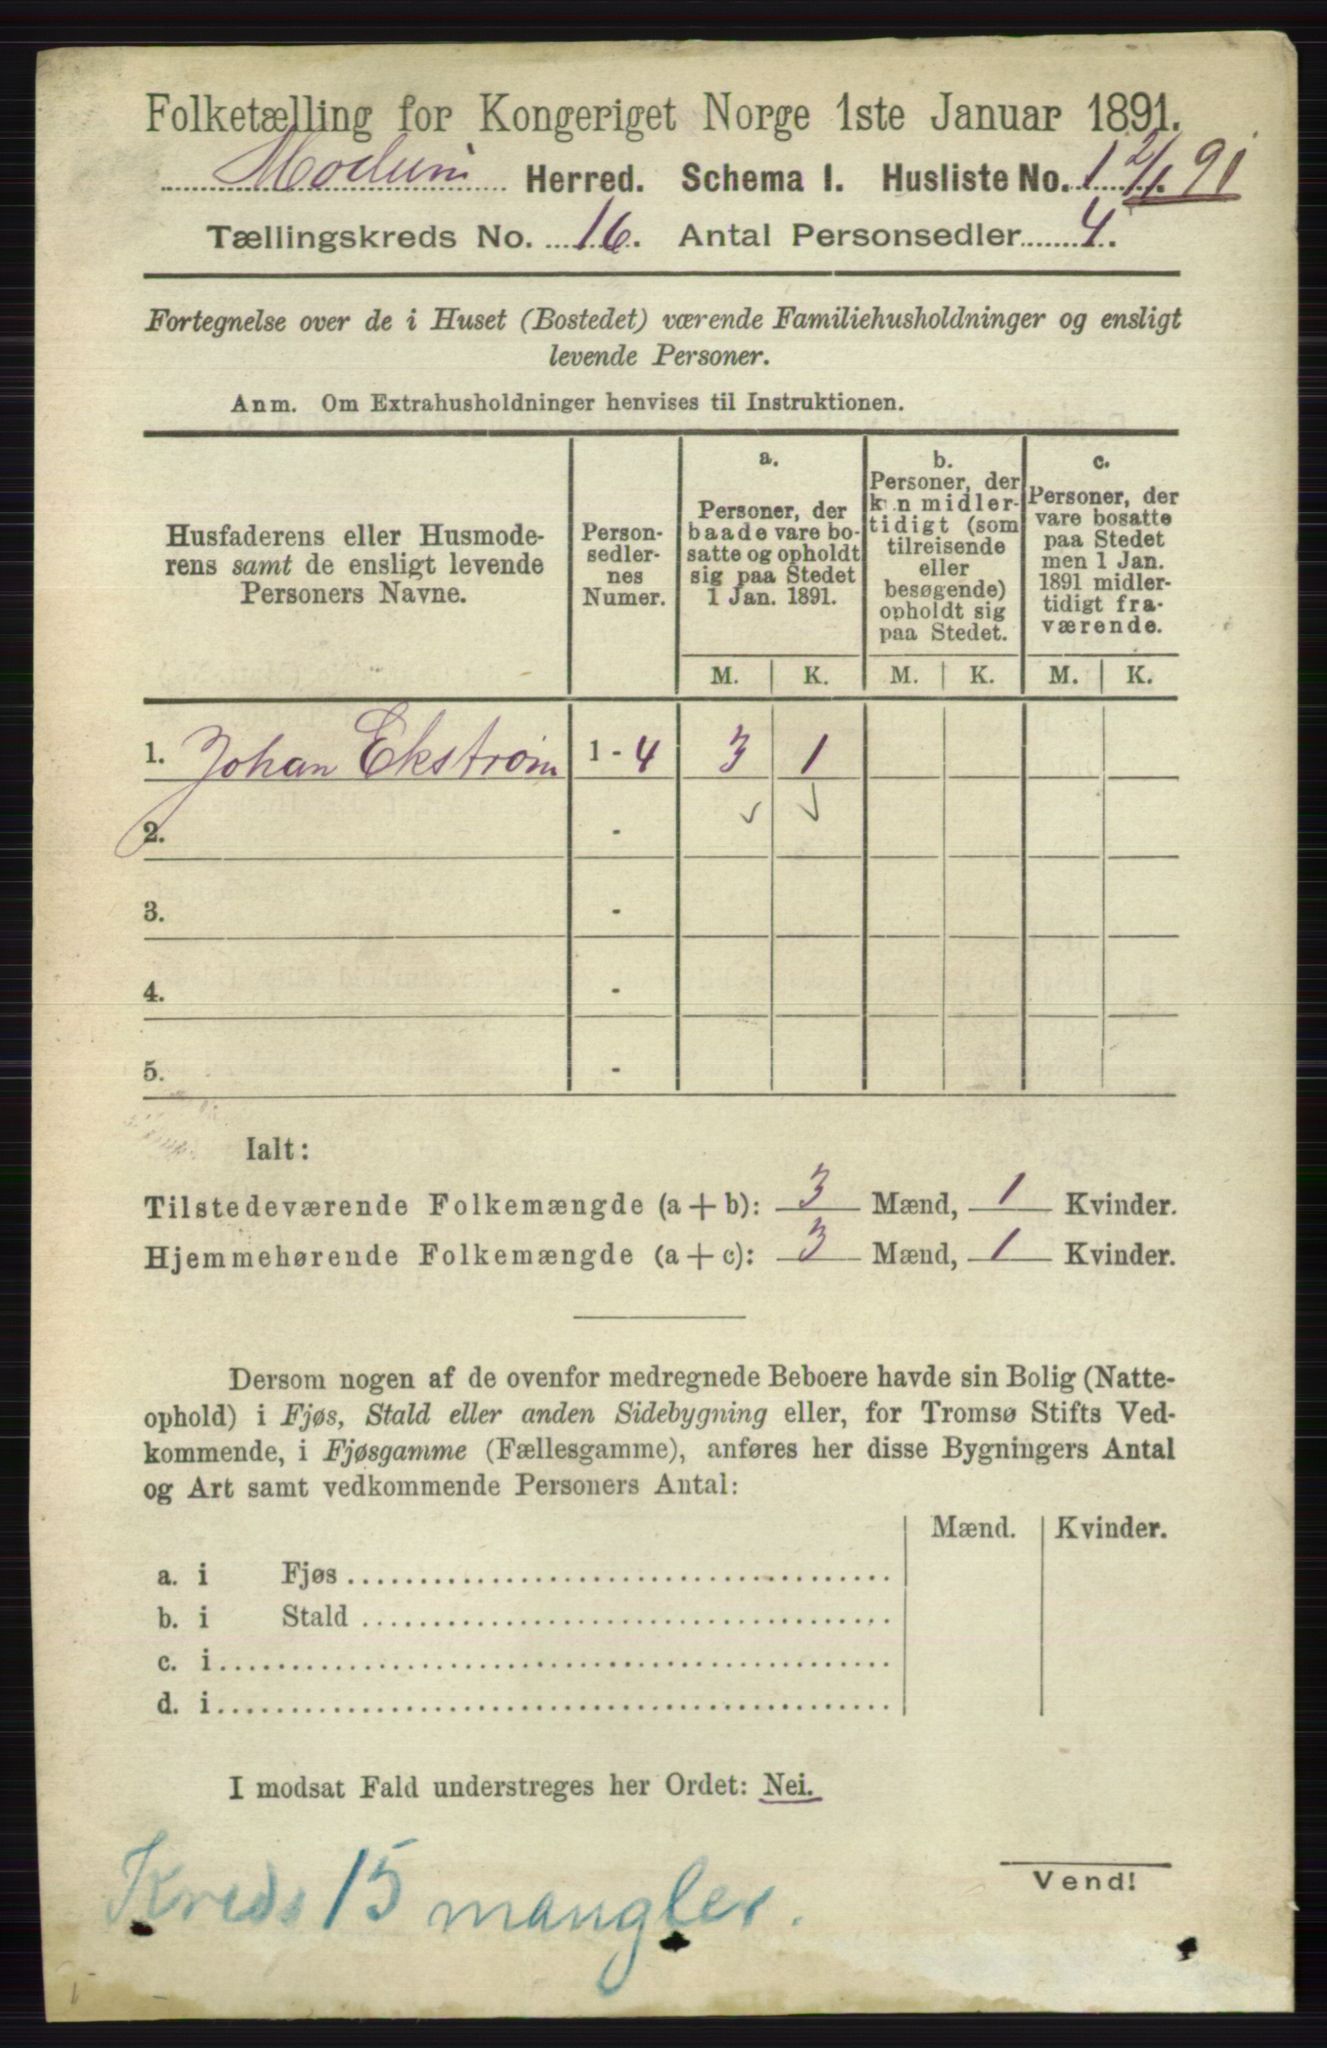 Folketælling for Kongeriget Norge 1ste Januar 1891.
Modum Herred. Schema I. Husliste No. 1 2/1 91
Tællingskreds No. 16. Antal Personsedler 4.
Fortegnelse over de i Huset (Bostedet) værende Familiehusholdninger og ensligt
levende Personer.
Anm. Om Extrahusholdninger henvises til Instruktionen.
Husfaderens eller Husmode-
rens samt de ensligt levende
Personers Navne.
Person-
sedler-
nes
Numer.
a.
Personer, der
baade vare bo-
satte og opholdt
sig paa Stedet
1 Jan. 1891.
b.
Personer, der
kun midler-
tidigt (som
tilreisende
eller
besøgende)
opholdt sig
paa Stedet.
c.
Personer, der
vare bosatte
paa Stedet
men 1 Jan.
1891 midler-
tidigt fra-
værende.
M. K. M. K. M. K.
1. Johan Ekstrøm 1 - 4 3 1
2. -
3. -
4. -
5. -
Ialt:
Tilstedeværende Folkemængde (a + b): 3 Mænd, 1 Kvinder.
Hjemmehørende Folkemængde (a + c): 3 Mænd, 1 Kvinder.
Dersom nogen af de ovenfor medregnede Beboere havde sin Bolig (Natte-
ophold) i Fjøs, Stald eller anden Sidebygning eller, for Tromsø Stifts Ved-
kommende, i Fjøsgamme (Fællesgamme), anføres her disse Bygningers Antal
og Art samt vedkommende Personers Antal:
Mænd. Kvinder.
a. i Fjøs
b. i Stald
c. i
d. i
I modsat Fald understreges her Ordet: Nei.
Vend!
Kreds 15 mangler.